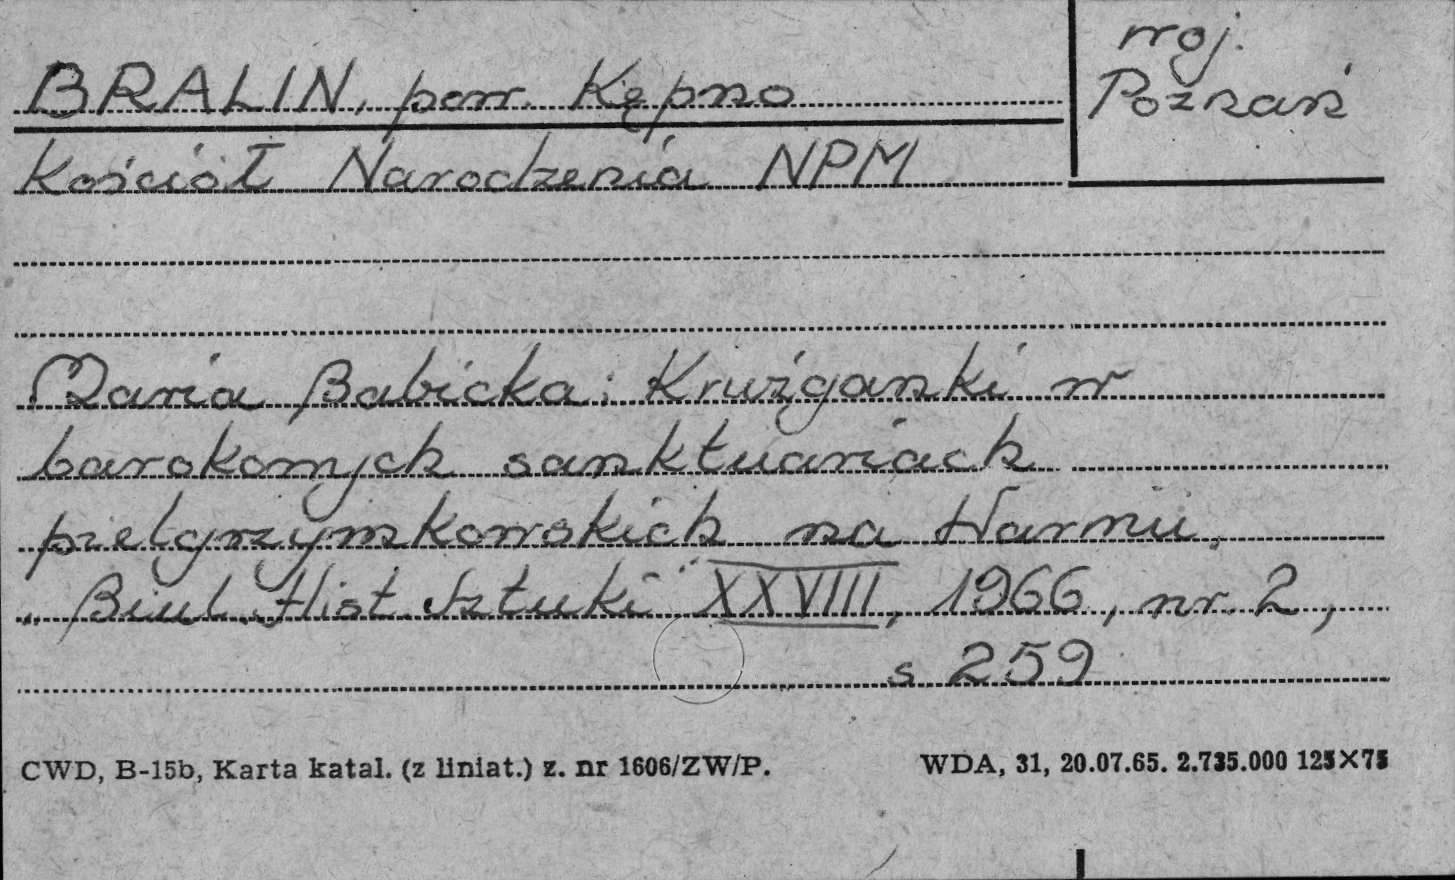 BRALIN, pow. Kępno
woj. Poznań
Kościół Narodzenia NPM
Maria Babicka: Krużganki w
barokowych sanktuariach
pielgrzymkowskich na Warmii.
„Biul. Hist. Sztuki" XXVIII, 1966, nr. 2,
s 259
CWD, B-15b, Karta katal. (z liniat.) z. nr 1606/ZW/P.
WDA, 31, 20.07.65. 2.735.000 125×75